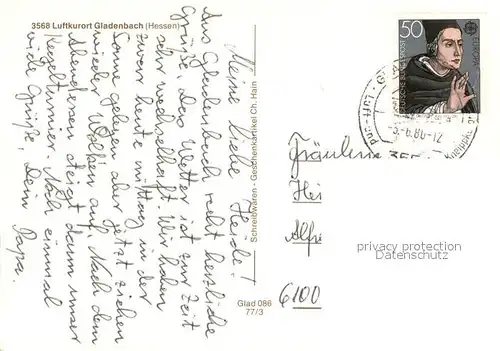 3568 Luftkurort Gladenbach (Hessen)
Meine liebe Heide!
Aus Gladenbach recht herzliche
Grüße, das Wetter ist zur Zeit
sehr wechselhaft. Wir haben
zwar heute mittag in der
Sonne gelegen aber jetzt ziehen
wieder Wolken auf. Nach dem
Abendessen steigt dann unser
Kegelturnier. Noch einmal
viele Grüße, Dein Papa.
Schreibwaren - Geschenkartikel Ch. Hain
Glad 086
77/3
50
DEUTSCHE BUNDESPOST
EUROPA
-5.-6.80-12
Luft-
Fräulein
Hei
Alfre
6100
privacy protection
www.ansichtskarten-center.de